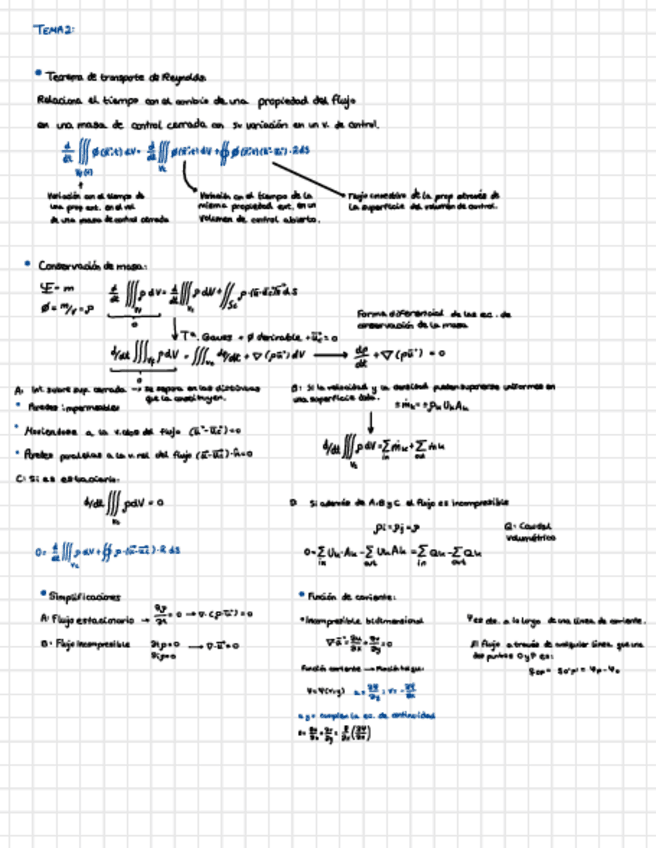 TEMA 2:
• Teorema de transporte de Reynolds
Relaciona el tiempo con el cambio de una propiedad del flujo
en una masa de control cerrada con su variación en un v. de control.
d/dt ∭ φ(x,t) dV = d/dt ∭ φ(x,t) dV + ∯ φ(x,t)(u-uc)·n ds
Variación con el tiempo de
una prop ext. en el vol
de una masa de control cerrada
Variación con el tiempo de la
misma propiedad ext. en un
volumen de control abierto.
Flujo convectivo de la prop a través de
la superficie del volumen de control.
• Conservación de masa:
Ψ = m
φ = m/V = ρ
d/dt ∭ ρ dV = d/dt ∭ ρ dV + ∬ ρ·(u-uc)·n ds
0
Tª. Gauss + φ derivable + uc = 0
Forma diferencial de las ec. de
conservación de la masa
d/dt ∭ ρ dV = ∭ dρ/dt + ∇(ρu) dV → dρ/dt + ∇(ρu) = 0
0
A: Int. sobre sup. cerrada → se separa en las distintas
que la constituyen.
• Paredes impermeables
• Moviendose a la v. del flujo (u-uc)=0
• Paredes paralelas a la v. rel del flujo (u-uc)·n=0
B: Si la velocidad y la densidad pueden suponerse uniformes en
una superficie dada.
± ṁk = ± ρk Uk Ak
d/dt ∭ ρ dV = Σ ṁk + Σ ṁk
in out
C: Si es estacionario:
d/dt ∭ ρ dV = 0
0 = d/dt ∭ ρ dV + ∯ ρ·(u-uc)·n ds
D Si además de A, B y C el flujo es incompresible
ρi = ρj = ρ
Q = Caudal
volumétrico
0 = Σ Uk·Ak - Σ Uk Ak = Σ Qk - Σ Qk
in out in out
• Simplificaciones
A: Flujo estacionario → ∂ρ/∂t = 0 → ∇·(ρu) = 0
B: Flujo incompresible → ∇·u = 0
• Función de corriente:
• Incompresible bidimensional
∇u = ∂u/∂x + ∂v/∂y = 0
Función corriente →
Ψ = Ψ(x,y) u = ∂Ψ/∂y ; v = -∂Ψ/∂x
cumplen la ec. de continuidad
Ψ es cte. a lo largo de una línea de corriente.
El flujo a través de cualquier línea que una
dos puntos O y P es: